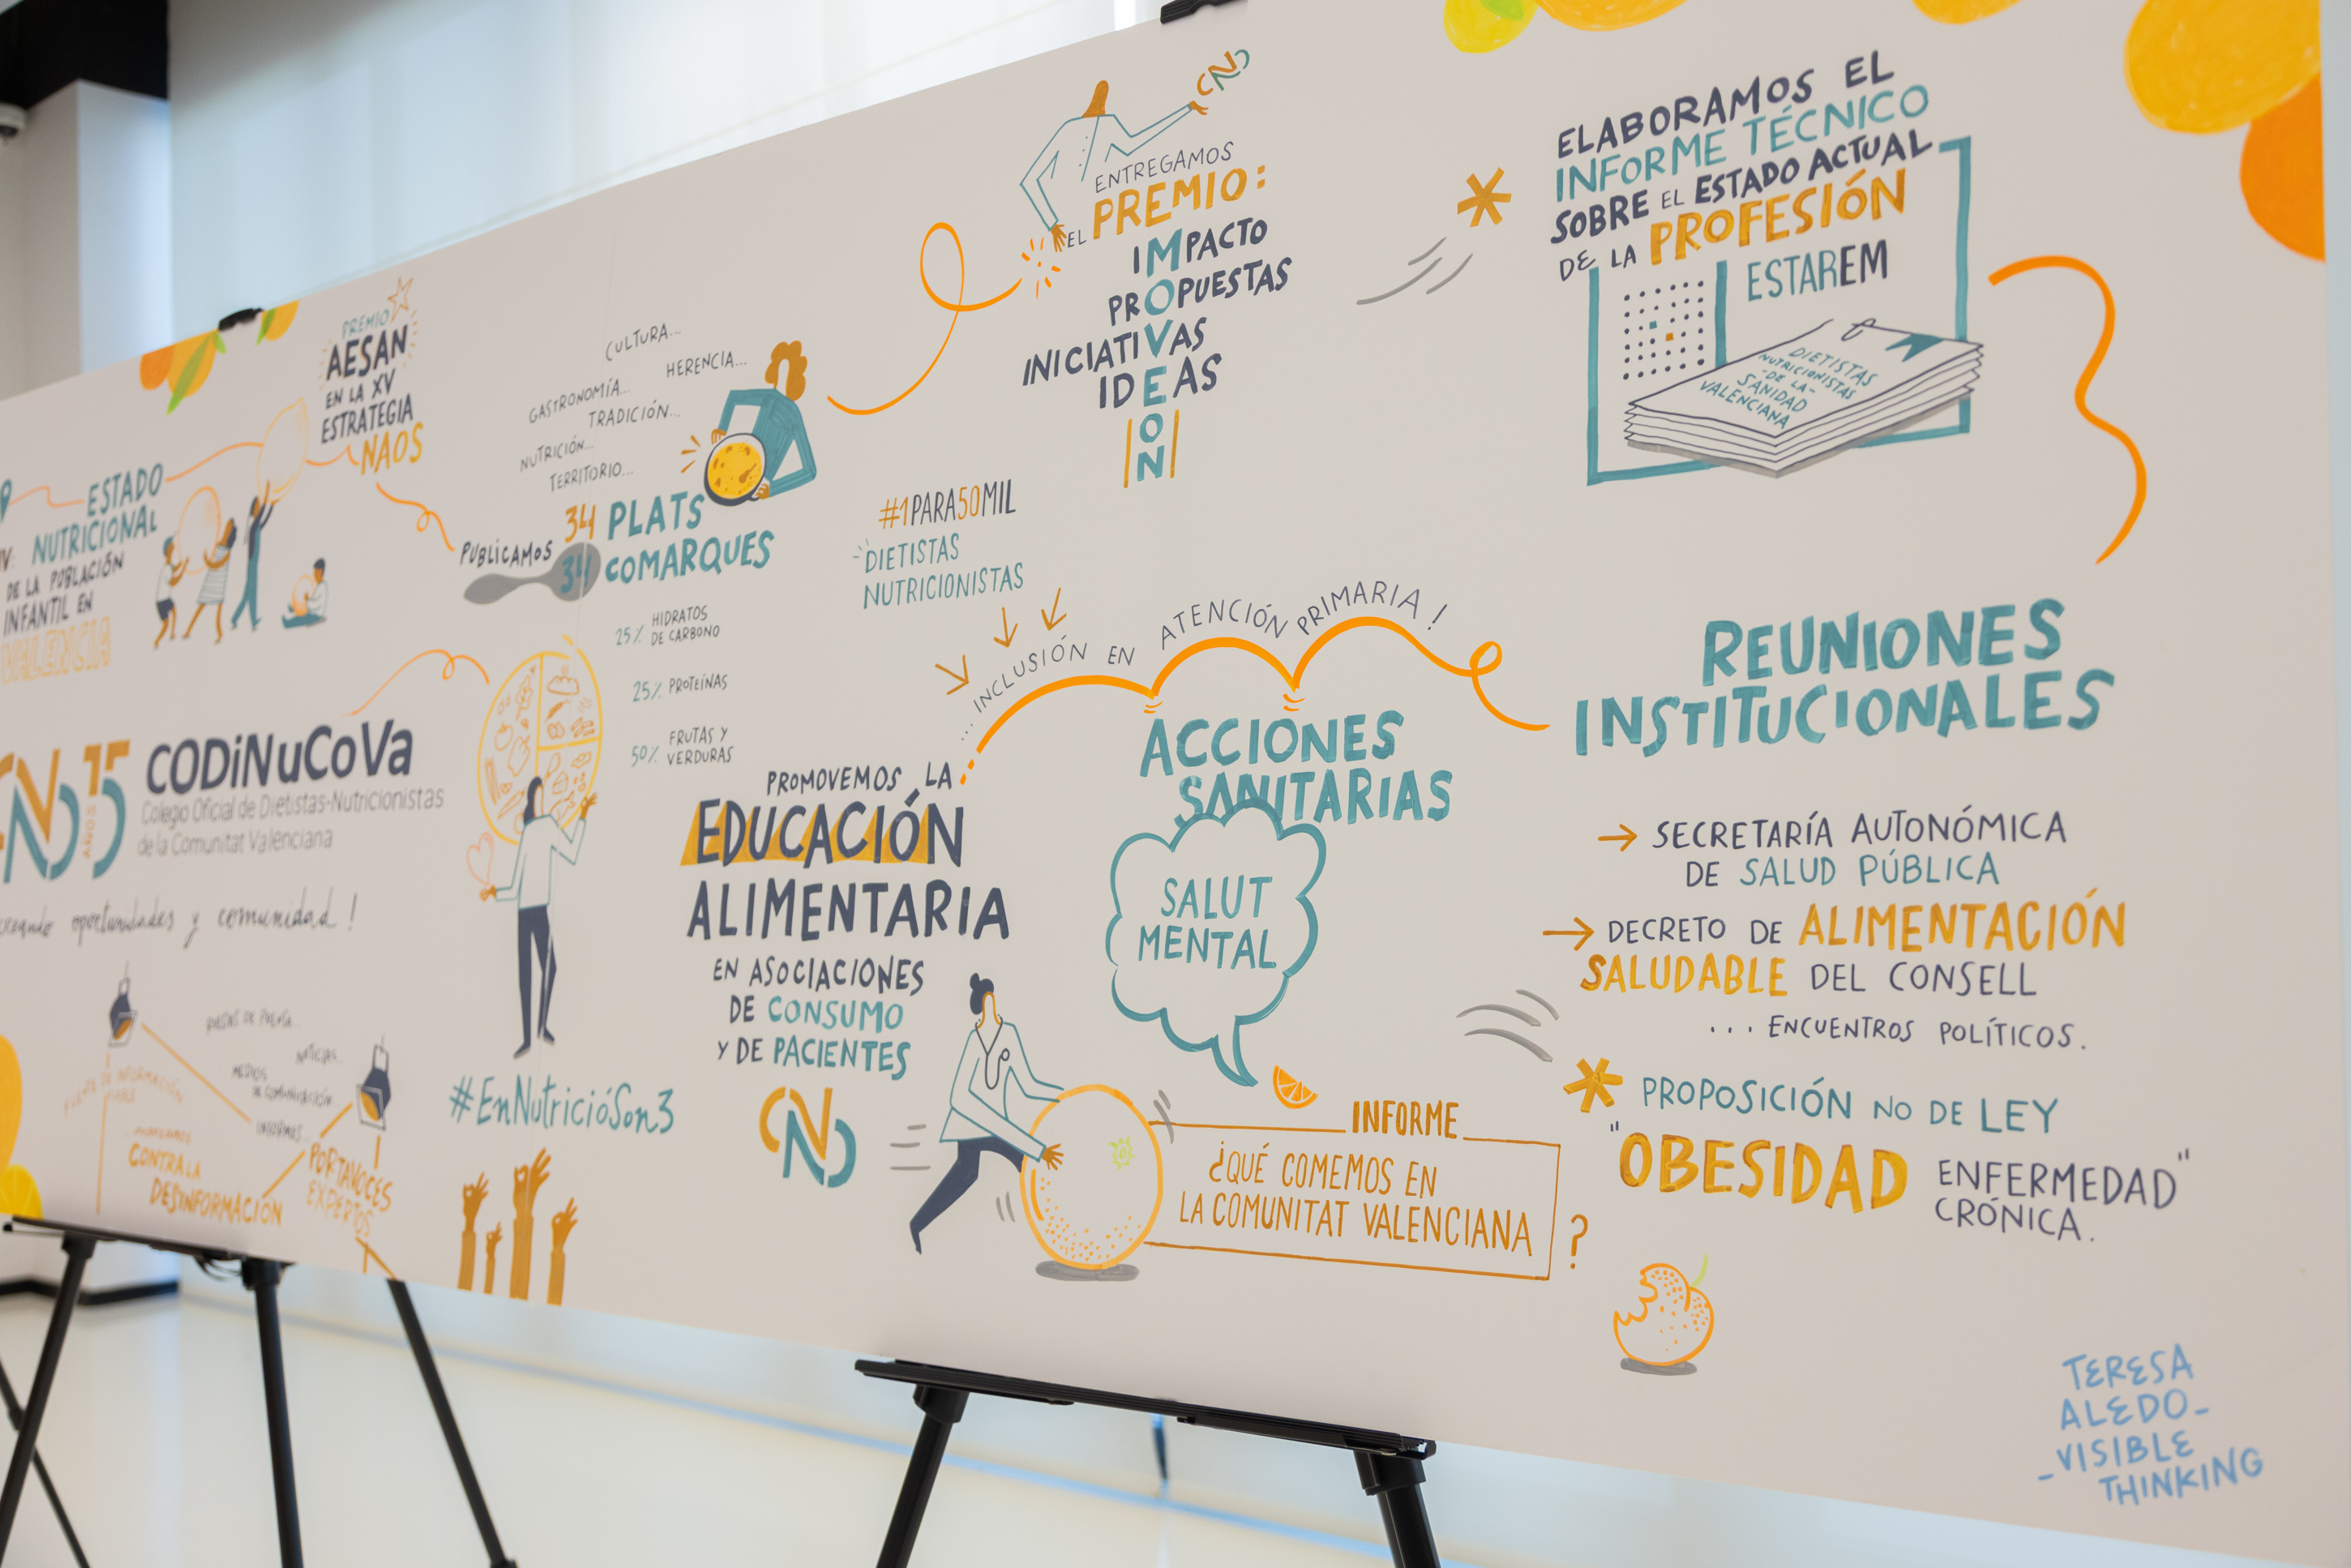 PREMIO
AESAN
EN LA XV
ESTRATEGIA
NAOS
ESTADO
NUTRICIONAL
DE LA POBLACIÓN
INFANTIL EN
VALENCIA
CODiNuCoVa
Colegio Oficial de Dietistas-Nutricionistas
de la Comunitat Valenciana
15
AÑOS
creando oportunidades y comunidad!
NOTICIAS...
MEDIOS
DE COMUNICACIÓN...
INFORMES...
CONTRA LA
DESINFORMACIÓN
PORTAVOCES
EXPERTOS
CULTURA...
HERENCIA...
GASTRONOMÍA...
TRADICIÓN...
NUTRICIÓN...
TERRITORIO...
PUBLICAMOS
34 PLATS
34 COMARQUES
25% HIDRATOS
DE CARBONO
25% PROTEÍNAS
50% FRUTAS Y
VERDURAS
#EnNutricióSon3
CND
ENTREGAMOS
EL PREMIO:
IMPACTO
PROPUESTAS
INICIATIVAS
IDEAS
O
N
#1PARA50MIL
DIETISTAS
NUTRICIONISTAS
... INCLUSIÓN EN ATENCIÓN PRIMARIA!
PROMOVEMOS LA
EDUCACIÓN
ALIMENTARIA
EN ASOCIACIONES
DE CONSUMO
Y DE PACIENTES
CND
ACCIONES
SANITARIAS
SALUT
MENTAL
INFORME
¿QUÉ COMEMOS EN
LA COMUNITAT VALENCIANA
?
ELABORAMOS EL
INFORME TÉCNICO
SOBRE EL ESTADO ACTUAL
DE LA PROFESIÓN
ESTAREM
DIETISTAS
NUTRICIONISTAS
-DE LA-
SANIDAD
VALENCIANA
REUNIONES
INSTITUCIONALES
→ SECRETARÍA AUTONÓMICA
DE SALUD PÚBLICA
→ DECRETO DE ALIMENTACIÓN
SALUDABLE DEL CONSELL
... ENCUENTROS POLÍTICOS.
* PROPOSICIÓN NO DE LEY
"OBESIDAD ENFERMEDAD"
CRÓNICA.
TERESA
ALEDO_
_VISIBLE
THINKING